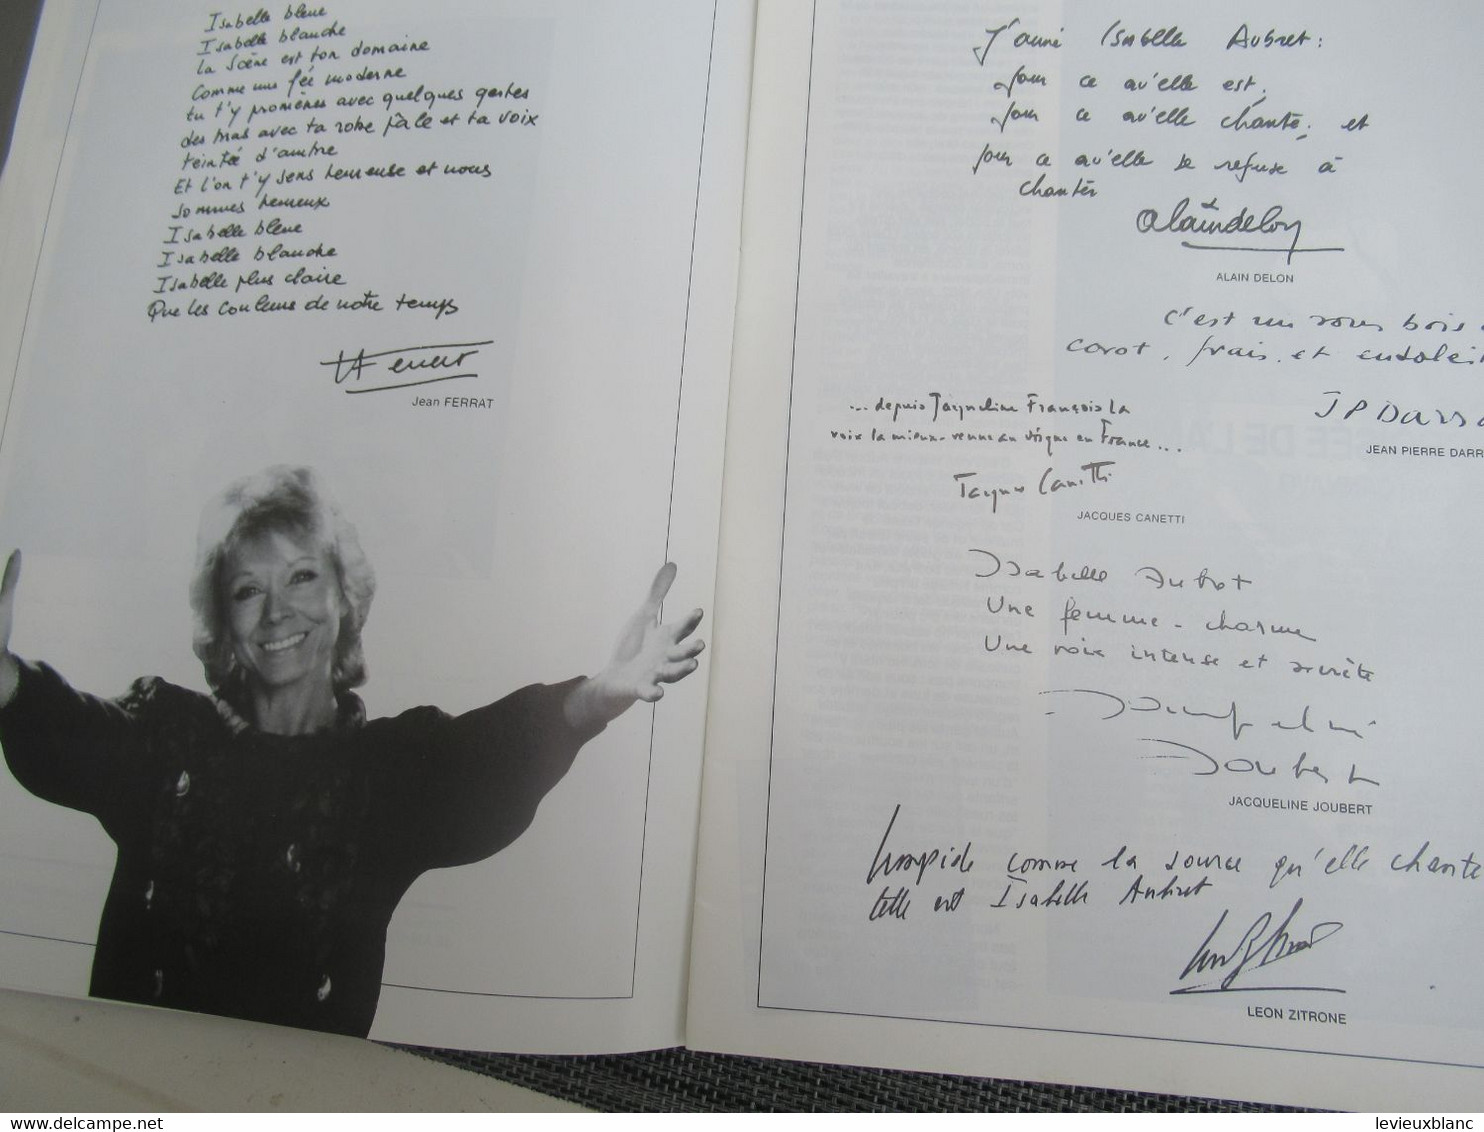 Isabelle bleue
Isabelle blanche
la scène est ton domaine
comme une fée moderne
tu t'y promènes avec quelques gestes
des bras avec ta robe pâle et ta voix
teintée d'ambre
Et l'on t'y sens heureuse et nous
sommes heureux
Isabelle bleue
Isabelle blanche
Isabelle plus claire
Que les couleurs de notre temps
Jean FERRAT
J'aime Isabelle Aubret :
pour ce qu'elle est,
pour ce qu'elle chante, et
pour ce qu'elle se refuse à
chanter
alaindelon
ALAIN DELON
c'est un sous bois
corot, frais, et
JP Darr
JEAN PIERRE DARR
... depuis Jacqueline François la
voix la mieux venue au disque en France ...
Jacques Canetti
JACQUES CANETTI
Isabelle Aubret
Une femme - charme
Une voix intense et secrète
Jacqueline
Joubert
JACQUELINE JOUBERT
Limpide comme la source qu'elle chante
telle est Isabelle Aubret
LEON ZITRONE
delcampe.net
levieuxblanc